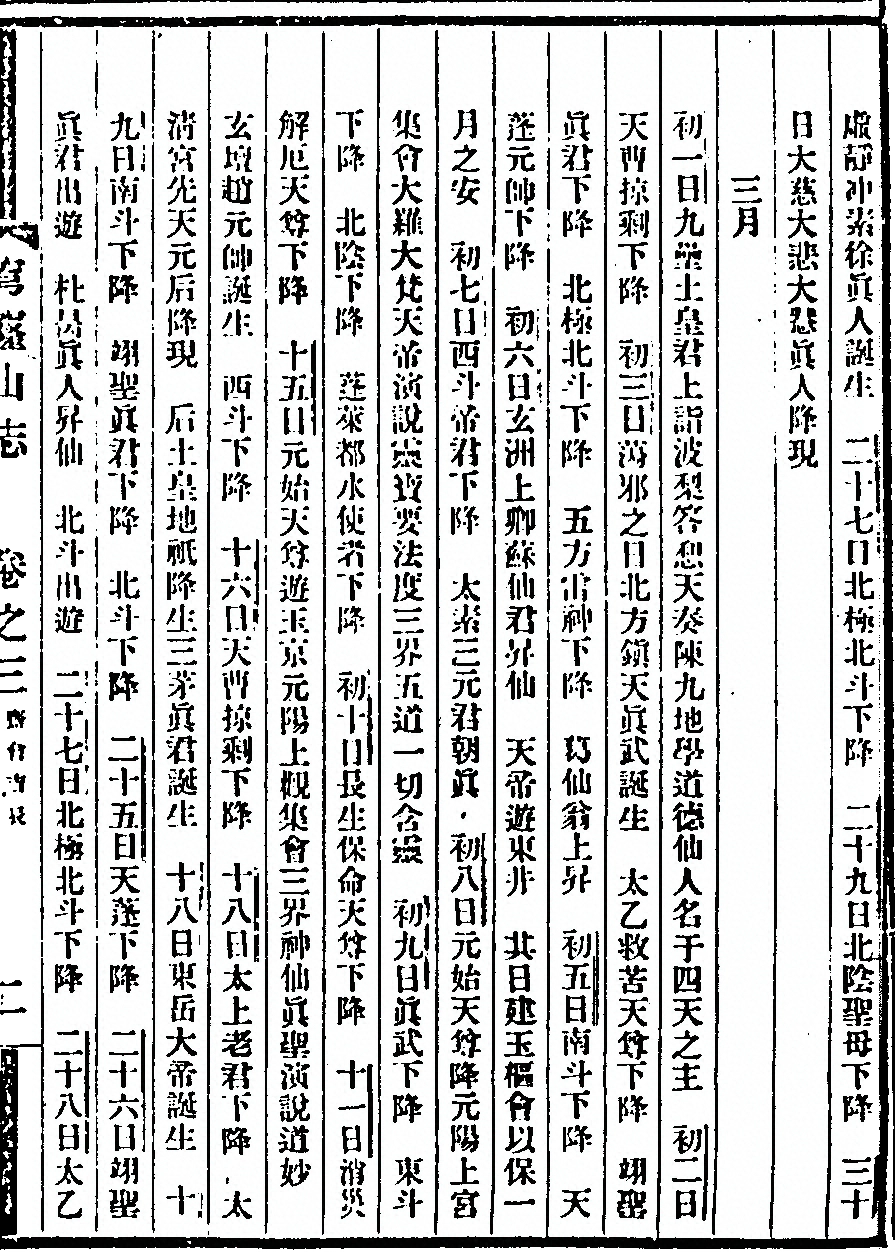 虛靜冲素徐眞人誕生　二十七日北極北斗下降　二十九日北陰聖母下降　三十
日大慈大悲大惠眞人降現
三月
初一日九壘土皇君上詣波梨答惒天奏陳九地學道德仙人名于四天之主　初二日
天曹掠剩下降　初三日蕩邪之日北方鎮天眞武誕生　太乙救苦天尊下降　翊聖
眞君下降　北極北斗下降　五方雷神下降　葛仙翁上昇　初五日南斗下降　天
蓬元帥下降　初六日玄洲上卿蘇仙君昇仙　天帝遊東井　其日建玉樞會以保一
月之安　初七日西斗帝君下降　太素三元君朝眞　初八日元始天尊降元陽上宮
集會大羅大梵天帝演說靈寶要法度三界五道一切含靈　初九日眞武下降　東斗
下降　北陰下降　蓬萊都水使者下降　初十日長生保命天尊下降　十一日消災
解厄天尊下降　十五日元始天尊遊玉京元陽上觀集會三界神仙眞聖演說道妙
玄壇趙元帥誕生　西斗下降　十六日天曹掠剩下降　十八日太上老君下降　太
淸宮先天元后降現　后土皇地祇降生三茅眞君誕生　十八日東岳大帝誕生　十
九日南斗下降　翊聖眞君下降　北斗下降　二十五日天蓬下降　二十六日翊聖
眞君出遊　杜昺眞人昇仙　北斗出遊　二十七日北極北斗下降　二十八日太乙
窿山志　卷之三　二